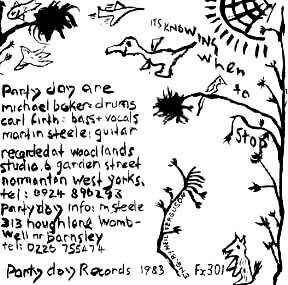 ITS KNOWING
when
to
stop
Party day are
michael baker: drums
carl firth: bass + vocals
martin steele: guitar
recorded at woodlands
studio, 6 garden street
normanton west yorks,
tel: 0924 896293
Party day info: m. steele
313 hough lane womb-
well nr barnsley
tel: 0226 755474
Party day Records 1983 Fx301